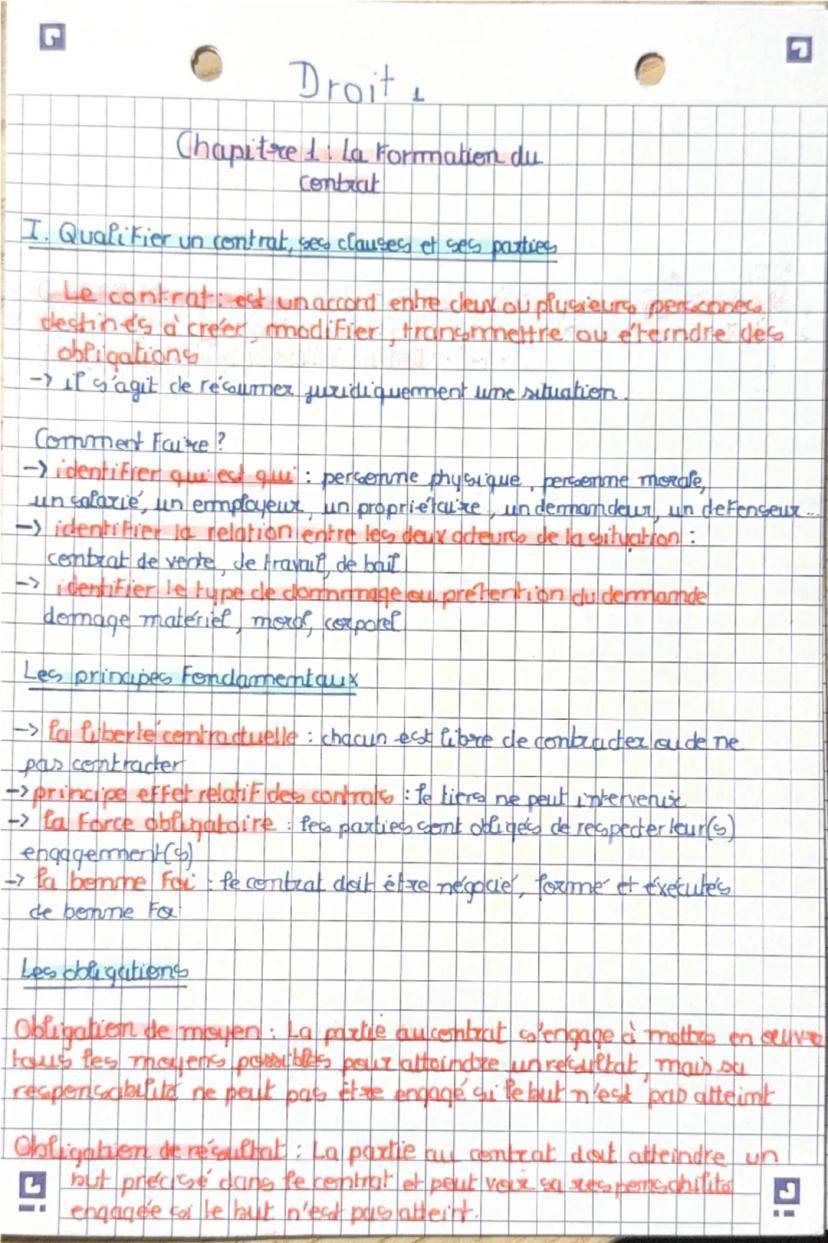 Droit 1
Chapitre 1 : La Formation du
contrat
I. Qualifier un contrat, ses clauses et ses parties
Le contrat : est un accord entre deux ou plusieurs personnes
destinés à créer, modifier, transmettre ou éteindre des
obligations
-> il s'agit de résumer juridiquement une situation.
Comment Faire ?
-> identifier qui est qui : personne physique, personne morale,
un salarié, un employeur, un propriétaire, un demandeur, un defenseur...
-> identifier la relation entre les deux acteurs de la situation :
contrat de vente, de travail, de bail
-> identifier le type de dommage ou prétention du demande
domage matériel, moral, corporel
Les principes Fondamentaux
-> la liberté contractuelle : chacun est libre de contracter ou de ne
pas contracter
-> principe effet relatif des contrats : le tiers ne peut intervenir
-> la Force obligatoire : les parties sont obligés de respecter leur(s)
engagement(s)
-> la bonne Foi : le contrat doit être négocié, formé et éxécutés
de bonne Foi
Les obligations
Obligation de moyen : La partie au contrat s'engage à mettre en œuvre
tous les moyens possibles pour atteindre un résultat, mais sa
responsabilité ne peut pas être engagé si le but n'est pas atteint
Obligation de résultat : La partie au contrat doit atteindre un
but précisé dans le contrat et peut voir sa responsabilité
engagée si le but n'est pas atteint.